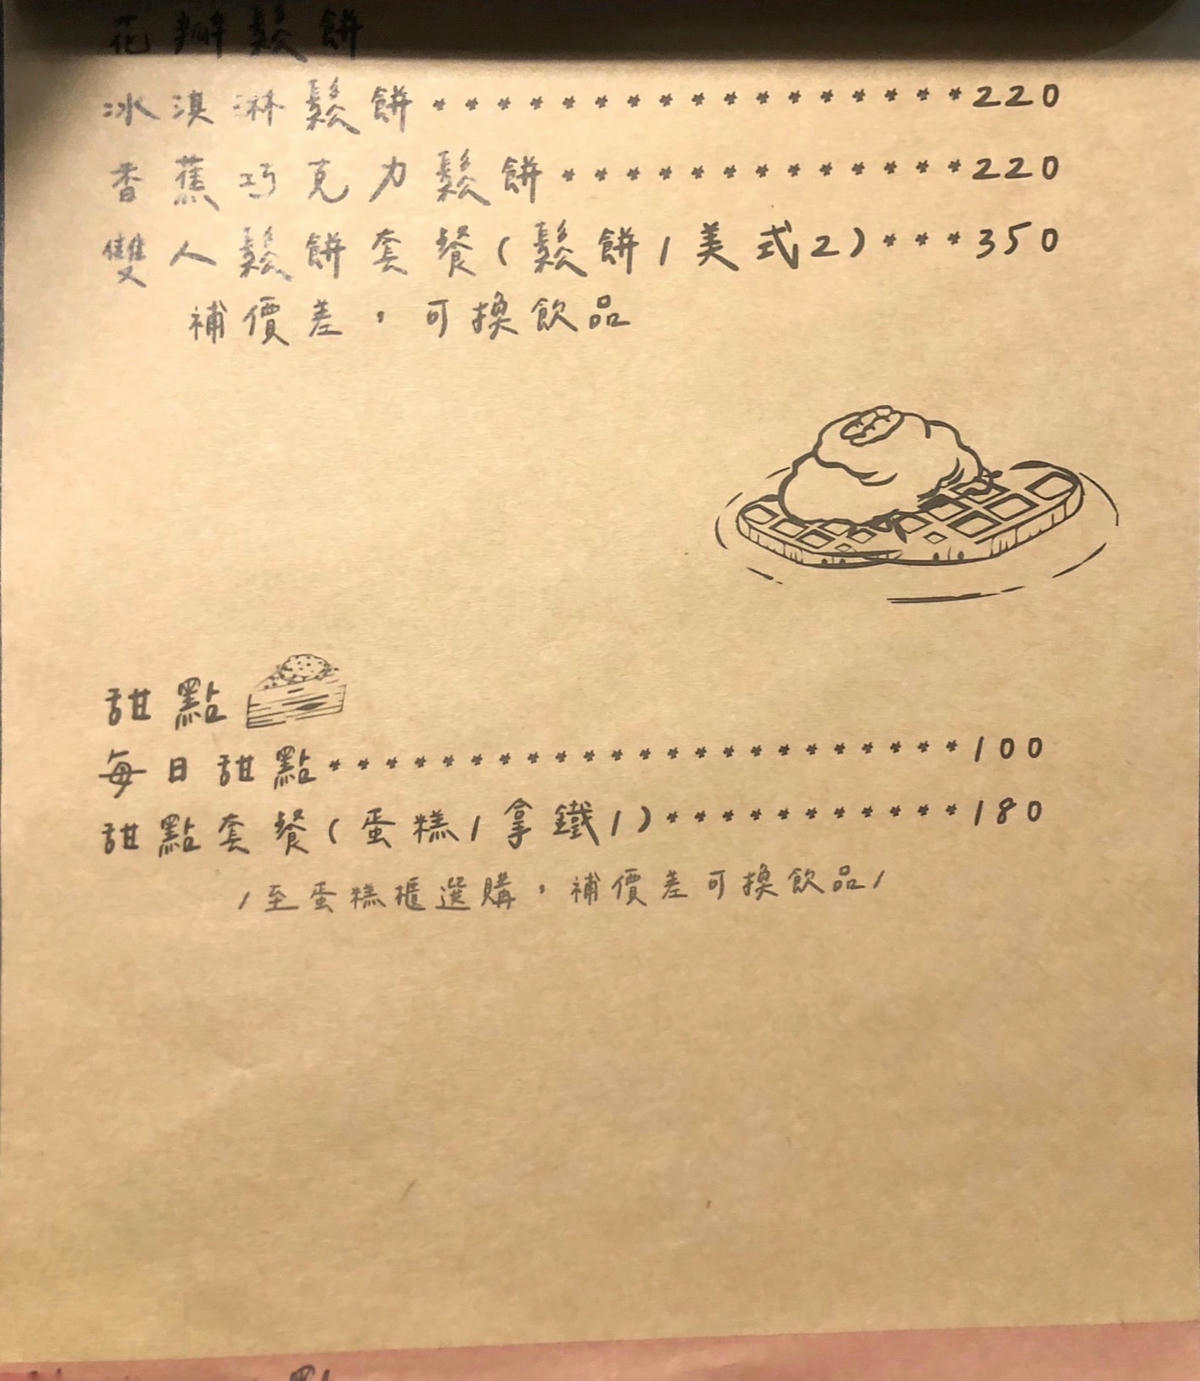 花瓣鬆餅
冰淇淋鬆餅*****************220
香蕉巧克力鬆餅*************220
雙人鬆餅套餐(鬆餅1美式2)***350
補價差，可換飲品
甜點
每日甜點***********************100
甜點套餐(蛋糕1拿鐵1)***********180
/至蛋糕櫃選購，補價差可換飲品/